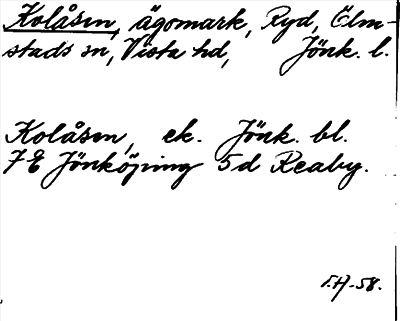 Kolåsen, ägomark, Ryd, Ölm-
stads sn, Vista hd, Jönk. l.
Kolåsen, ek. Jönk. bl.
7E Jönköping 5d Reaby.
T.H-58.